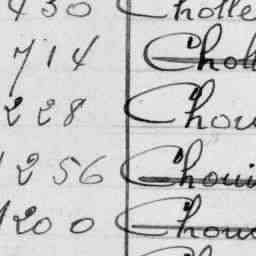 430 Cholle
714 Choll
228 Chou
1256 Choui
1200 Chou